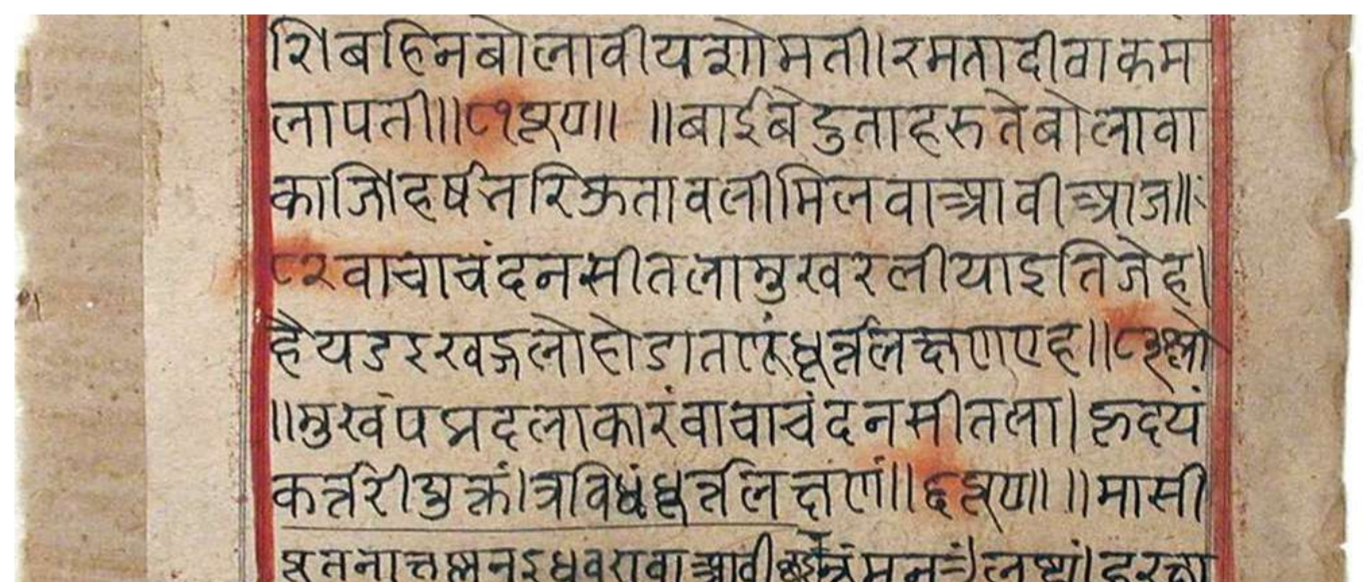 शिबहिनबोलावीयशोमती।रमतादीवाकम
लापती॥।८१झपा॥ ॥बाईबेटुताहरुतेबोलावा
काजिहर्षनरिऊतावलीमिलवाआवीआज॥
८२वाचाचंदनसीतलामुखरलीयाइतिजेह।
हैयडइखड्गलोहोडातणूंधूर्त्तलक्षणएह॥८३श्लो
॥मुखंपद्मदलाकारंवाचाचंदनसीतला।हृदयं
कर्त्तरीयुक्तं।त्रविधंधूर्त्तलक्षणं॥६झपा॥ ॥मासी